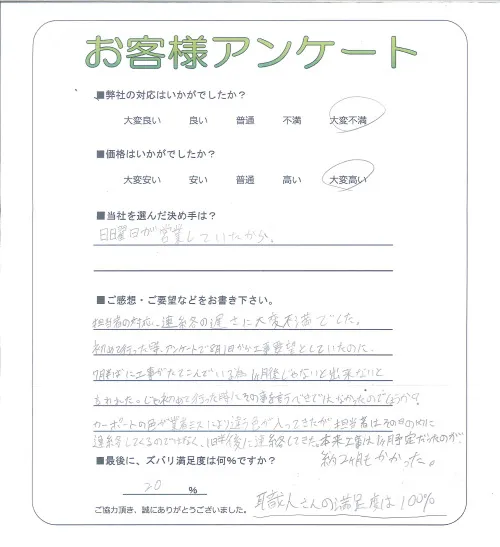 お客様アンケート
■弊社の対応はいかがでしたか?
大変良い 良い 普通 不満 大変不満
■価格はいかがでしたか?
大変安い 安い 普通 高い 大変高い
■当社を選んだ決め手は?
日曜日が営業していたから。
■ご感想・ご要望などをお書き下さい。
担当者の対応、連絡等の遅さに大変不満でした。
初めて行った時、アンケートで8月1日から工事要望としていたのに、
7月半ばに工事がたてこんでいる為1ヶ月後じゃないと出来ないと
言われた。じゃ初めに行った時にその事を言うべきではなかったのでしょうか?
カーポートの色が業者ミスにより違う色が入ってきたが担当者はその日の内に
連絡してくるのではなく、1日半後に連絡してきた。本来工事は1ヶ月予定だったのが
約2ヶ月もかかった。
■最後に、ズバリ満足度は何%ですか?
20 %
職人さんの満足度は100%
ご協力頂き、誠にありがとうございました。